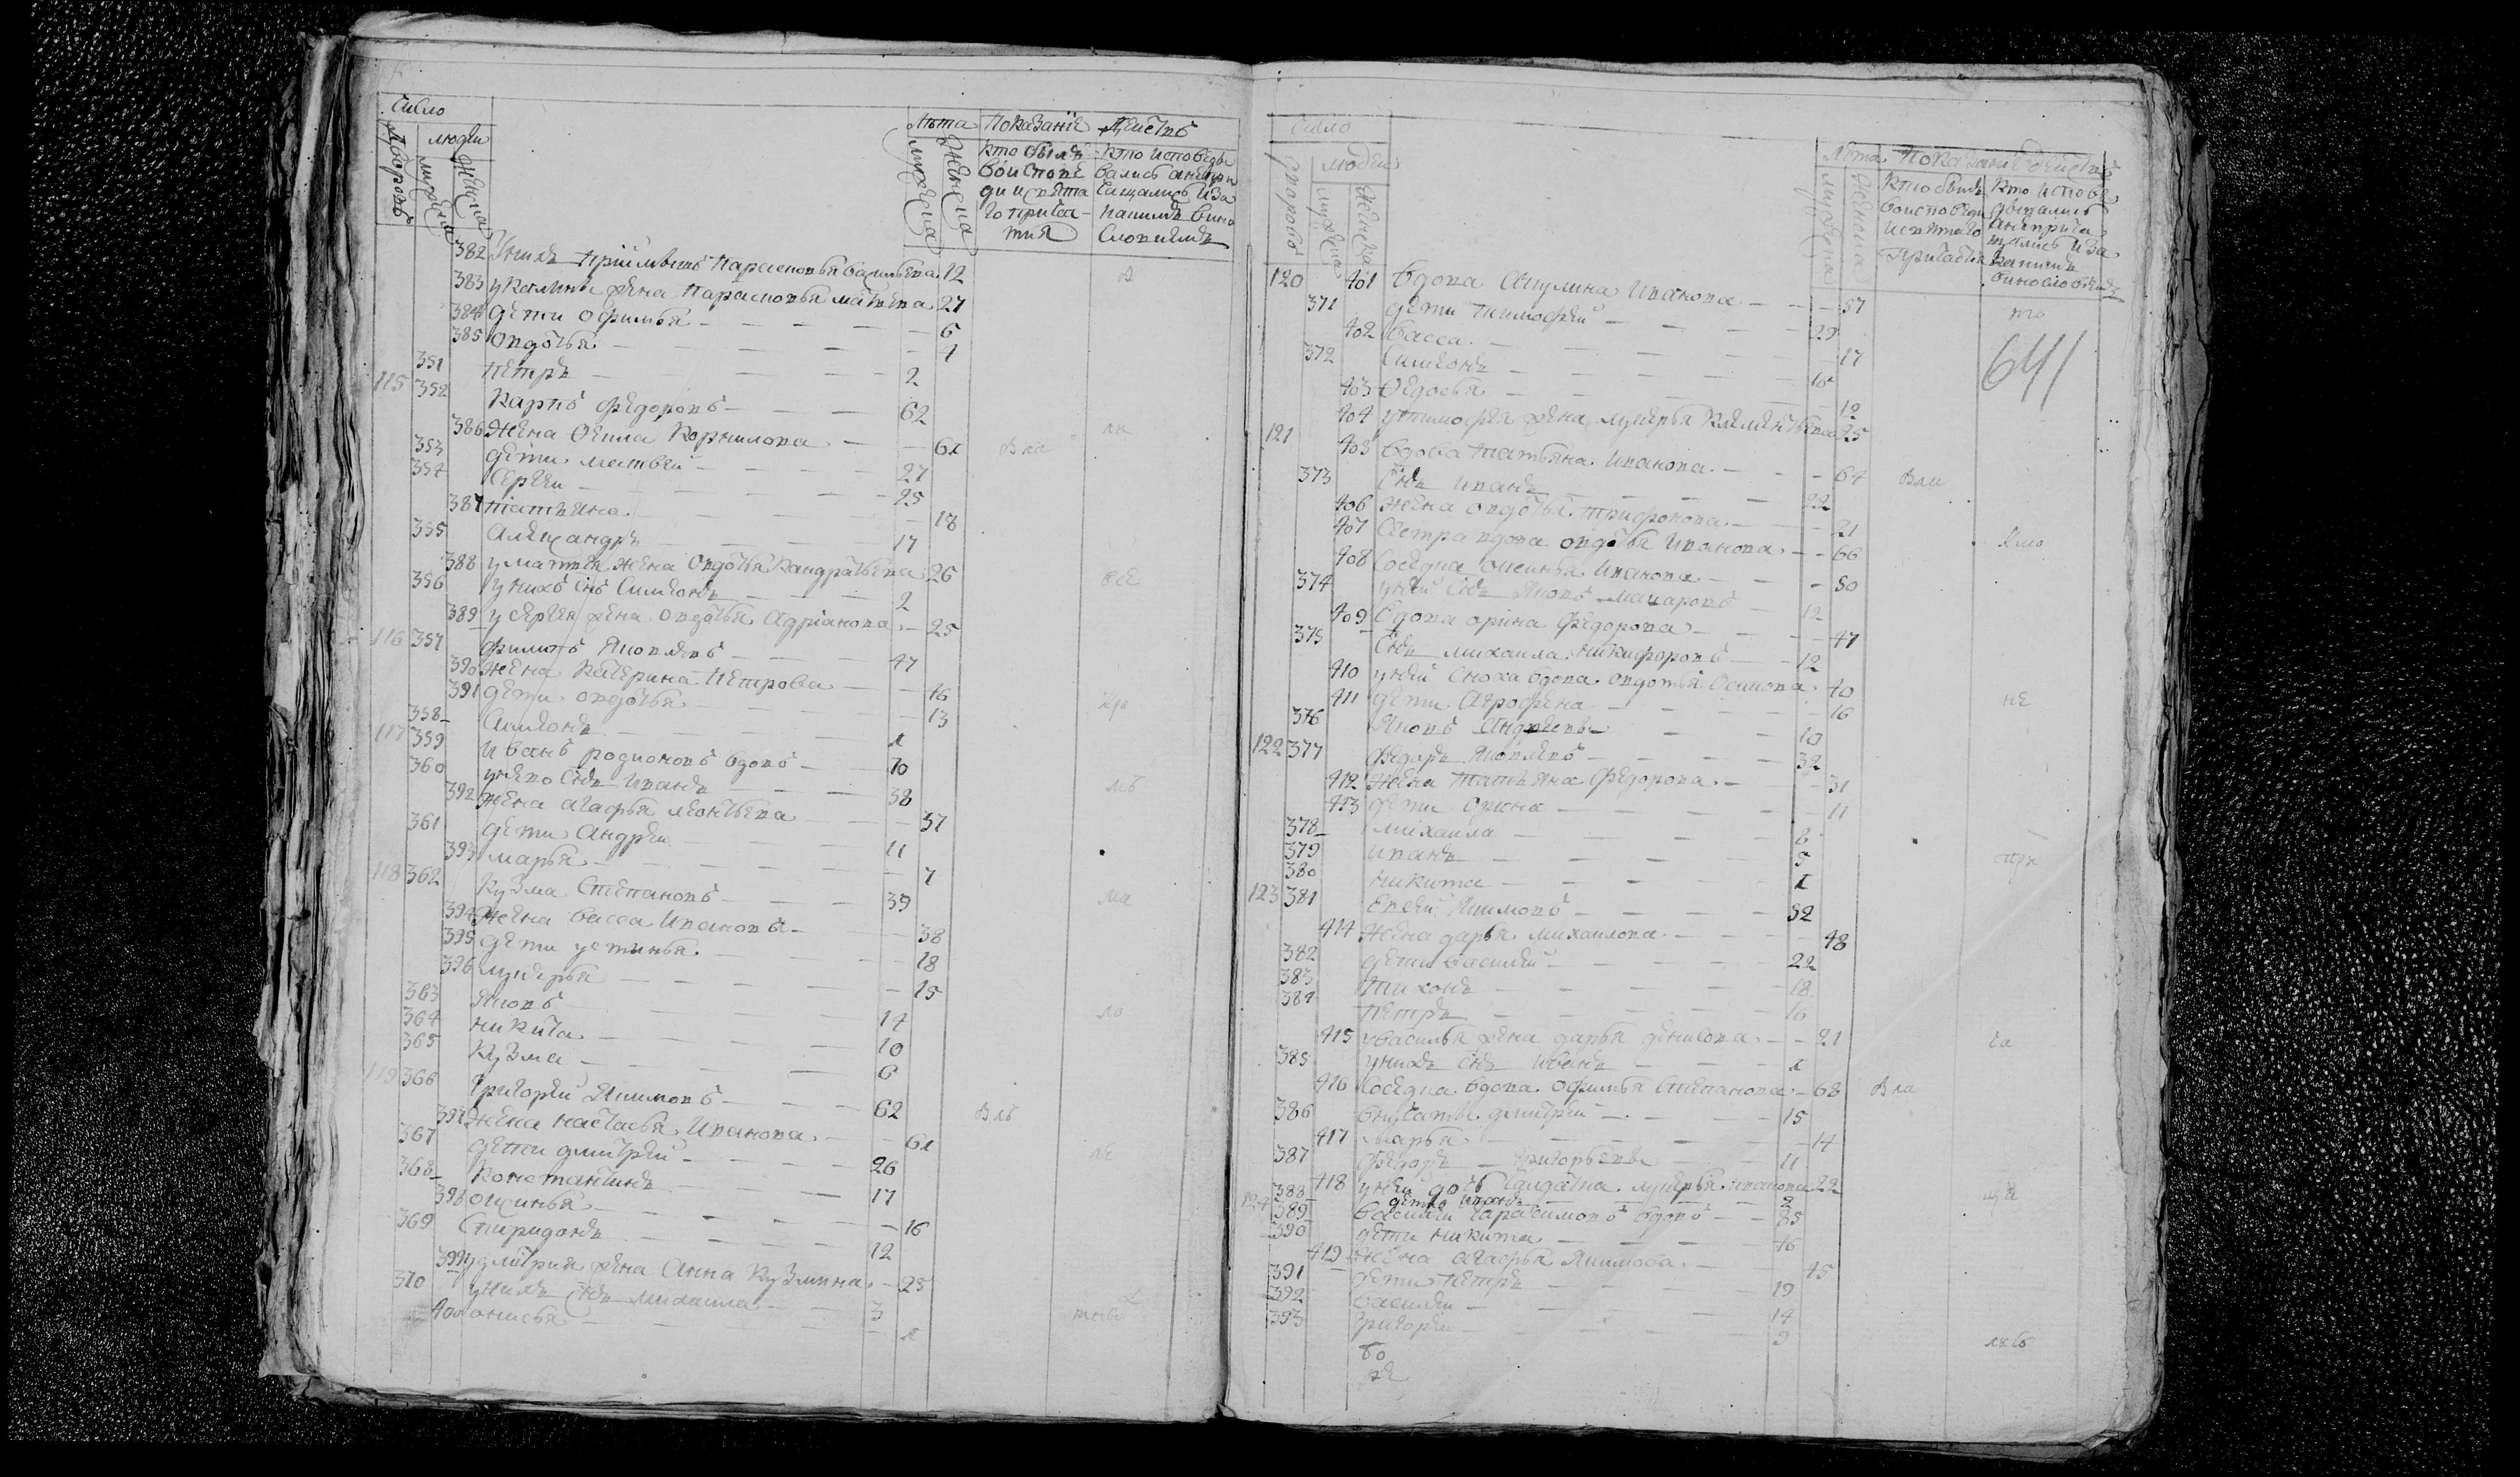 Число
Дворовъ
людей
мужеска
женска
Лѣта
мужеска
женска
Показанiе
дѣйствъ
кто былъ
во испове
ди и свята
го прича-
тия
кто исповеда
вались а не при
чащались и за
какимъ вино
словиемъ
382 У нихъ приiмышъ Парасковья Васильева 12
383 у Калины жена Парасковья Матвева 27
384 дети Офимья 6
385 Овдотья 4
351 Петръ 2
115 352 Карпъ Федоровъ 62
386 Жена Фекла Корнилова 61
353 дети Матвей 27
354 Сергей 25
387 Татьяна 18
355 Александръ 17
388 у Матвея жена Овдотья Кандратьева 26
356 у нихъ снъ Симеонъ 2
389 у Сергея жена Овдотья Адрiанова 25
116 357 Филипъ Яковлевъ 47
390 жена Катерина Петрова 46
391 дети Овдотья 13
358 Симеонъ 1
117 359 Иванъ Родионовъ вдовъ 70
360 у него снъ Иванъ 38
392 жена Агафья Леонтьева 37
361 дети Андрей 11
393 Марья 7
118 362 Кузма Степановъ 39
394 Жена Васса Иванова 38
395 дети Устинья 18
396 Лукерья 15
363 Яковъ 14
364 Никита 10
365 Кузма 6
119 366 Григорей Якимовъ 62
397 Жена Настасья Иванова 61
367 дети Дмитрей 26
368 Константинъ 17
398 Оксинья 16
369 Спиридонъ 12
399 у Дмитрия жена Анна Кузмина 25
370 у нихъ снъ Михаила 3
400 Анисья 1
Число
дворовъ
людей
мужеска
женска
Лѣта
мужеска
женска
Показание действъ
кто былъ
во исповеди
и святаго
Причастия
кто испове
дывались
а не прича
щались и за
какимъ
винословiемъ
120 401 Вдова Акулина Иванова 57
371 дети Тимофей 29
402 Васса 17
372 Симеонъ 16
403 Федосья 12
404 у Тимофея жена Лукерья Клементьева 25
121 405 Вдова Татьяна Иванова 64
373 Снъ Иванъ 22
406 Жена Овдотья Трифонова 21
407 Сестра вдова Овдотья Иванова 66
408 Соседка Оксинья Иванова 50
374 у ней снъ Яковъ Макаровъ 12
409 Вдова Орина Федорова 47
375 Снъ Михаила Никифоровъ 12
410 у ней сноха вдова Овдотья Осипова 40
411 дети Агрофена 16
376 Яковъ Андреевъ 10
122 377 Федоръ Яковлевъ 32
412 Жена Татьяна Федорова 31
413 дети Орина 11
378 Михаила 8
379 Иванъ 5
380 Никита 1
123 381 Евсей Якимовъ 52
414 Жена Дарья Михаилова 48
382 дети Василей 22
383 Тихонъ 18
384 Петръ 16
415 у Василья жена Дарья Денисова 21
385 у нихъ снъ Иванъ 1
416 Соседка вдова Офимья Степанова 68
386 внучаты Дмитрей 15
417 Марья 14
387 Федоръ Григорьевъ 11
418 у ней дочь салдатка Лукерья Иванова 22
388 детъ Иванъ 2
124 389 Василей Гарасимовъ вдовъ 85
390 дети Никита 46
419 Жена Агафья Якимова 45
391 дети Петръ 19
392 Василей 14
393 Григорей 9
641